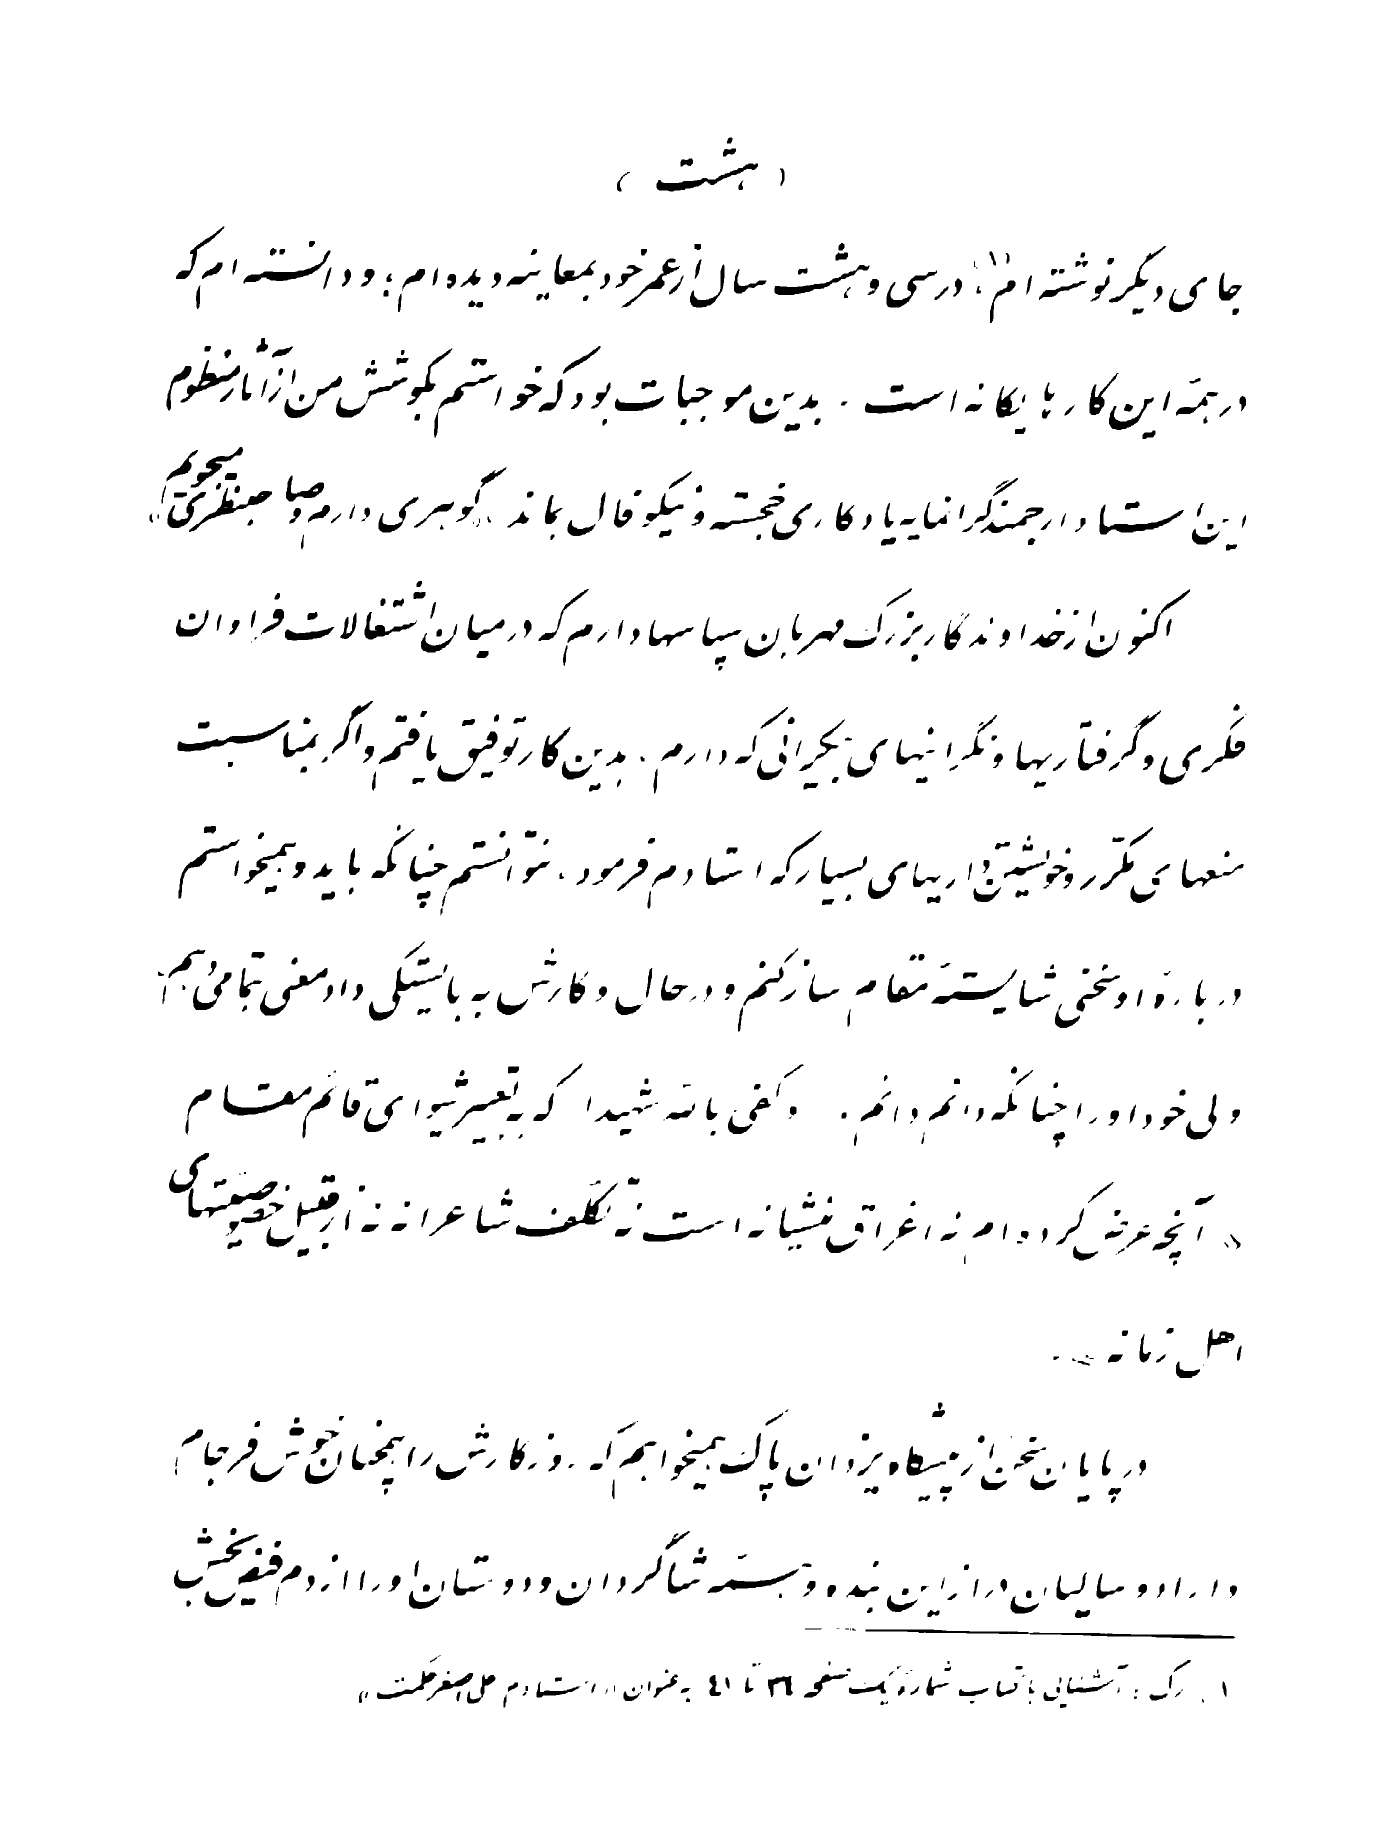 ( هشت )
جای دیگر نوشته ام(۱)؛ در سی و هشت سال از عمر خود بمعاینه دیده ام؛ و دانسته ام که
در همهٔ این کارها یگانه است . بدین موجبات بود که خواستم بکوشش من از آثار منظوم
این استاد ارجمند گرانمایه یادگاری خجسته و نیکو فال بماند «گوهری دارم و صاحبنظری میجویم»
اکنون از خداوندگار بزرگ مهربان سپاسها دارم که در میان اشتغالات فراوان
فکری و گرفتاریها و نگرانیهای بیکرانی که دارم . بدین کار توفیق یافتم و اگر بمناسبت
منعهای مکرّر و خویشتن داریهای بسیار که استادم فرمود . نتوانستم چنانکه باید و همیخواستم
دربارهٔ او سخنی شایستهٔ مقام ساز کنم و در حال و کارش به بایستگی داد معنی بتمامی دهم
ولی خود او را چنانکه دانم دانم . وکفی بالله شهیدا که به تعبیر شیوای قائم مقام
« آنچه عرض کرده ام نه اغراق منشیانه است نه تکلّف شاعرانه نه از قبیل خصوصیتهای
اهل زمانه » .
در پایان سخن از پیشگاه یزدان پاک همیخواهم که روزگارش را همچنان خوش فرجام
داراد و سالیان دراز این بنده و همهٔ شاگردان و دوستان او را از دم فیض بخش
۱ . رک : آشنایی با کتاب شمارهٔ یک صفحه ۳۶ تا ۴۱ به عنوان «استادم علی اصغر حکمت»